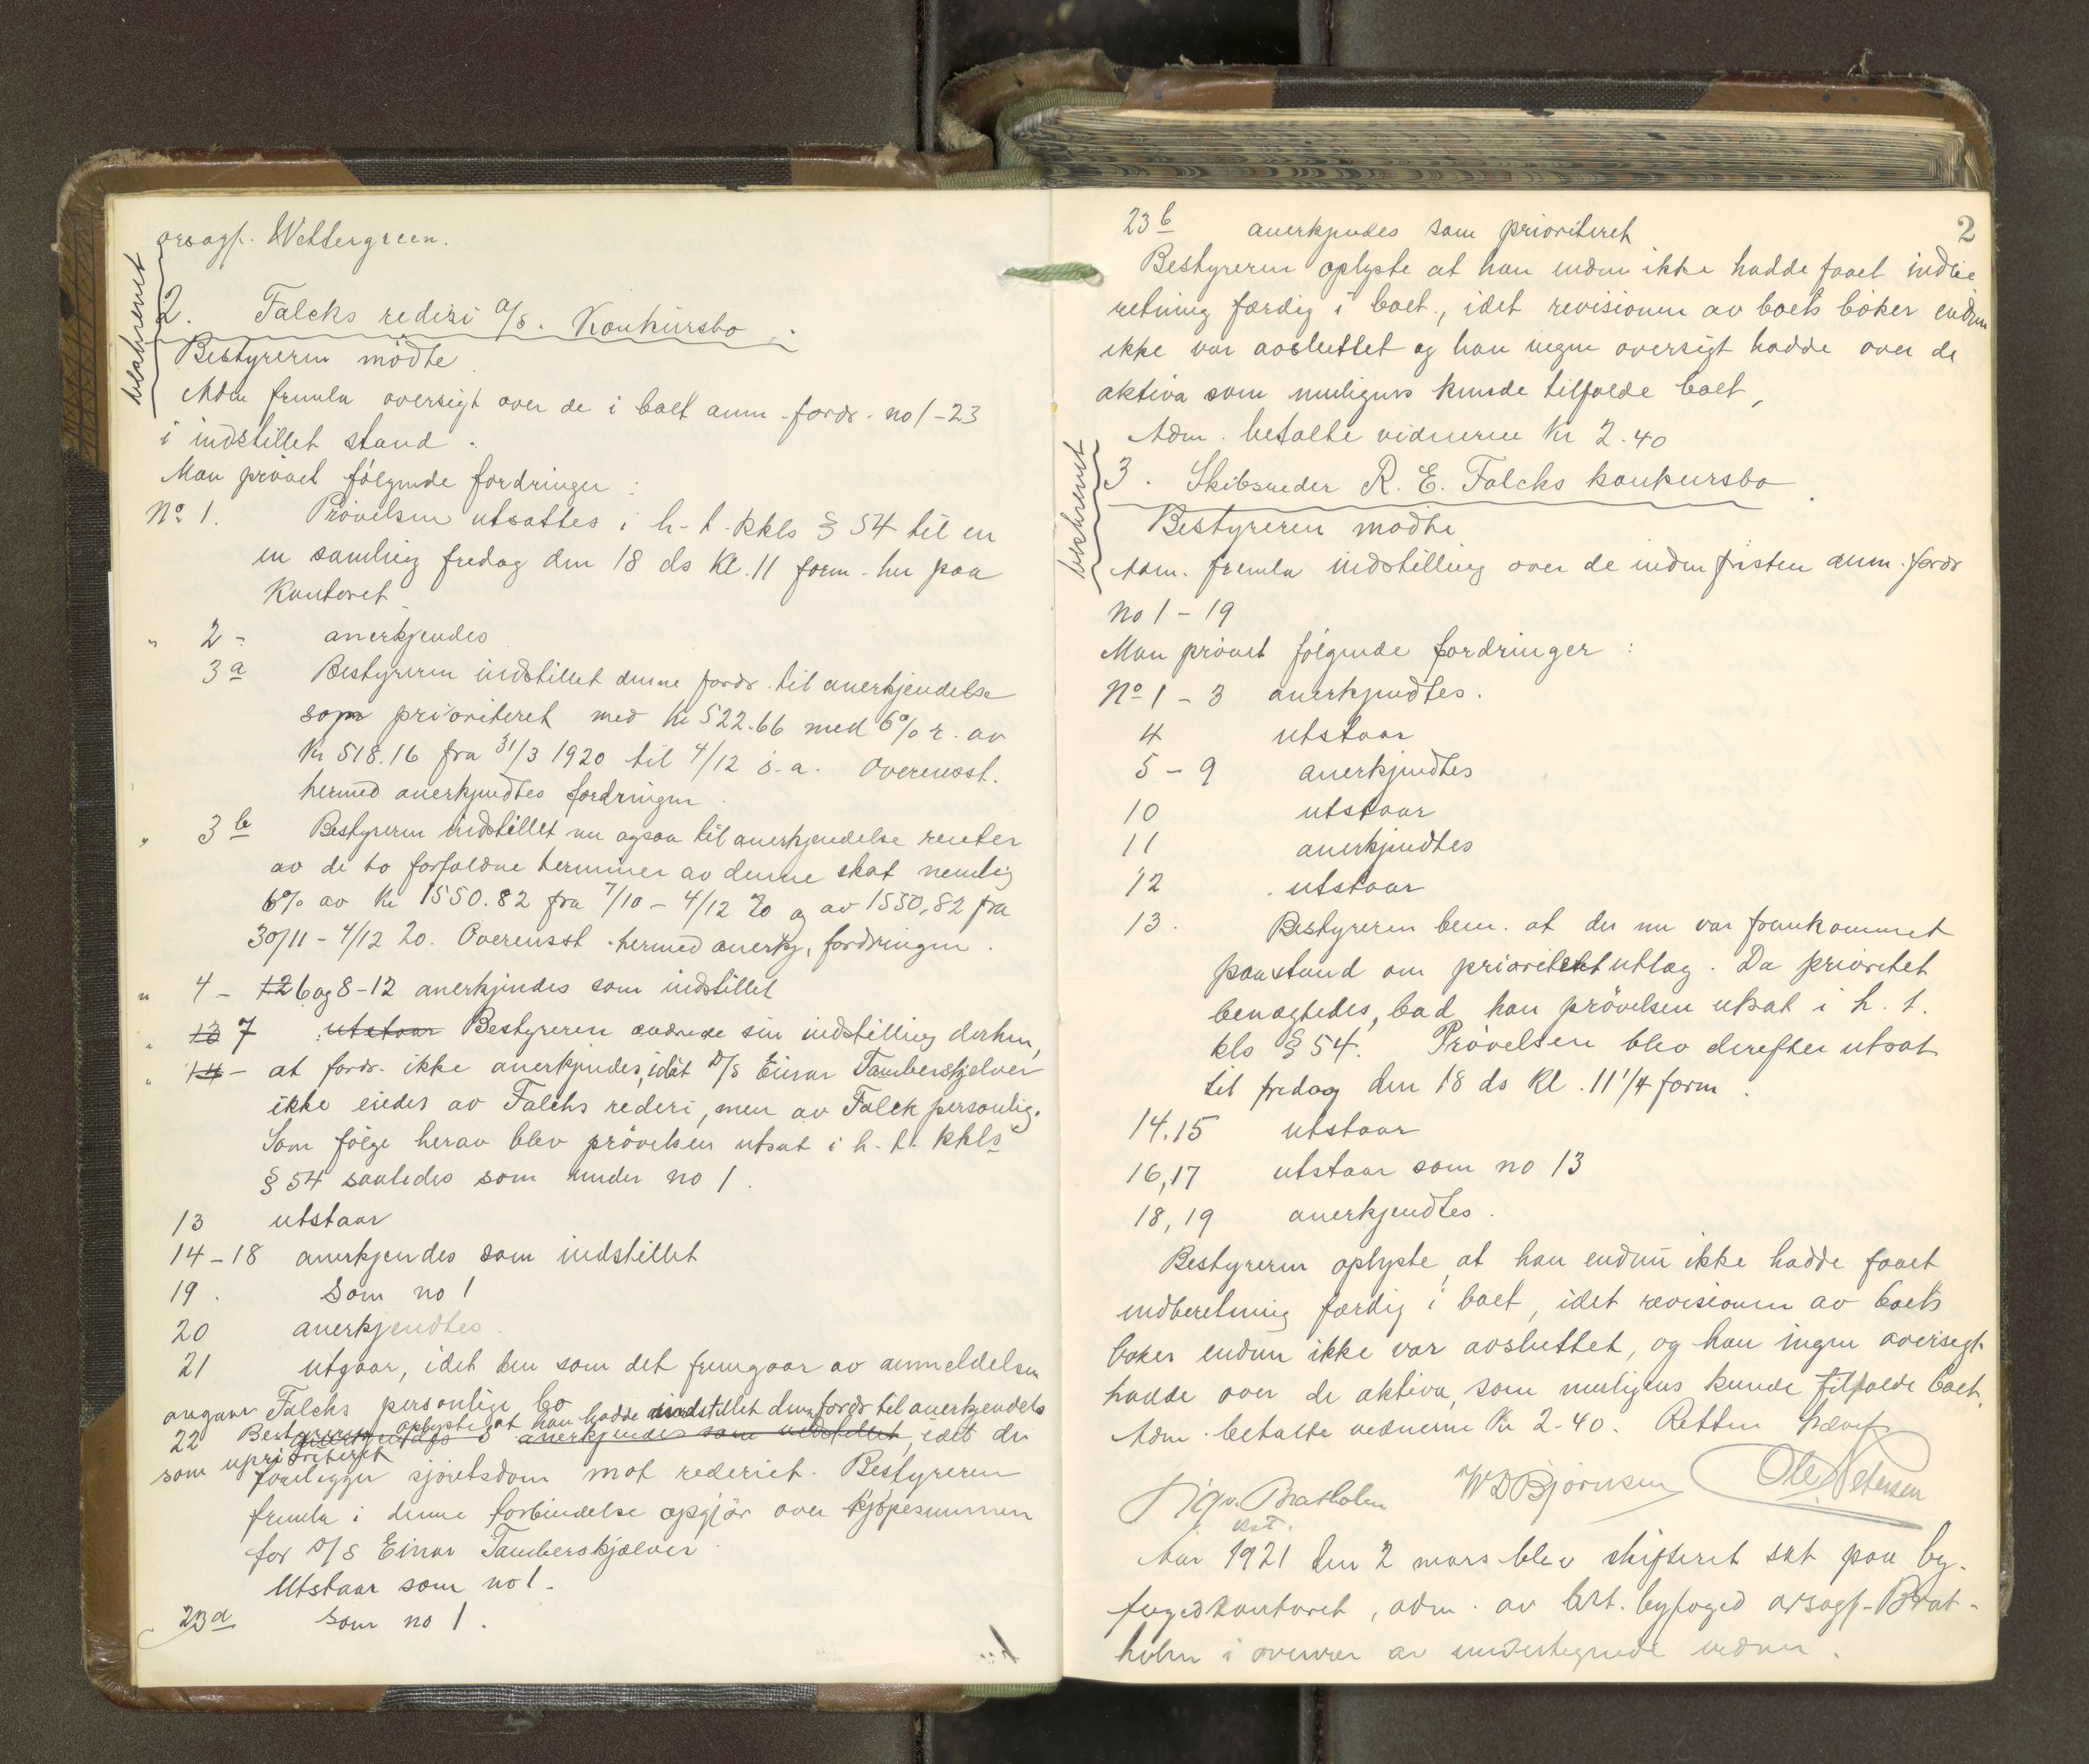 orsagf. Wettergreen.
beskrevet
2. Falcks rederi a/s. Konkursbo.
Bestyreren mödte.
Adm fremla oversigt over de i boet anm. fordr. no 1-23
i indstillet stand.
Man prövet fölgende fordringer:
No 1. Prövelsen utsattes i h. t. kkls § 54 til en
en samling fredag den 18 ds Kl. 11 form. her paa
Kontoret
" 2 - anerkjendes
3 a Bestyreren indstillet denne fordr. til anerkjendelse
som prioriteret med Kr 522.66 med 6% r. av
Kr 518.16 fra 31/3 1920 til 4/12 s. a. Overensst.
hermed anerkjendtes fordringen.
" 3 b Bestyreren indstillet nu ogsaa til anerkjendelse renter
av de to forfaldne terminer av denne skat nemlig
6% av Kr 1550.82 fra 7/10 - 4/12 20 og av 1550,82 fra
30/11 - 4/12 20. Overensst. hermed anerkj. fordringen.
" 4 - 12 6 og 8-12 anerkjendes som indstillet
" 13 7 utstaar Bestyreren endrede sin indstilling derhen,
" 14 - at fordr. ikke anerkjendes, idet D/S Einar Tamberskjelver
ikke eiedes av Falcks rederi, men av Falck personlig.
Som fölge herav blev prövelsen utsat i h. t. kkls
§ 54 saaledes som under no 1.
13 utstaar
14-18 anerkjendes som indstillet
19. Som no 1
20 anerkjendtes.
21 utgaar, idet den som det fremgaar av anmeldelsen
angaar Falcks personlige bo
22 Bestyreren oplyste at han hadde indstillet den fordr til anerkjendels
anerkjendes som indstillet, idet der
som uprioriteret
foreligger sjöretsdom mot rederiet. Bestyreren
fremla i denne forbindelse opgjör over kjöpesummen
for D/S Einar Tamberskjælver.
Utstaar som no 1.
23 a Som no 1.
2
23 b anerkjendes som prioriteret
Bestyreren oplyste at han endnu ikke hadde faaet indbe
retning færdig i boet, idet revisionen av boets böker endnu
ikke var avsluttet og han ingen oversigt hadde over de
aktiva som muligens kunde tilfalde boet,
Adm. betalte vidnerne Kr 2.40
beskrevet
3. Skibsreder R. E. Falcks konkursbo.
Bestyreren mödte
Adm. fremla indstilling over de inden fristen anm. fordr
no 1 - 19
Man prövet fölgende fordringer:
No 1 - 3 anerkjendtes.
4 utstaar
5 - 9 anerkjendtes
10 utstaar
11 anerkjendtes
12 utstaar
13. Bestyreren bem. at der nu var fremkommet
paastand om prioritert utlæg. Da prioritet
benægtedes, bad han prövelsen utsat i h. t.
kls § 54. Prövelsen blev derefter utsat
til fredag den 18 ds Kl. 11 1/4 form.
14.15 utstaar
16,17 utstaar som no 13
18, 19 anerkjendtes.
Bestyreren oplyste, at han endnu ikke hadde faaet
indberetning færdig i boet, idet revisionen av boets
böker endnu ikke var avsluttet, og han ingen oversigt
hadde over de aktiva, som muligens kunde tilfalde boet.
Adm. betalte vidnerne Kr 2-40. Retten hævet
Sigv. Bratholm W D Björnsen Ole Petersen
kst.
Aar 1921 den 2 mars blev skifteret sat paa by-
fogedkontoret, adm. av kst. byfoged orsagf. Brat-
holm i overvær av undertegnede vidner.